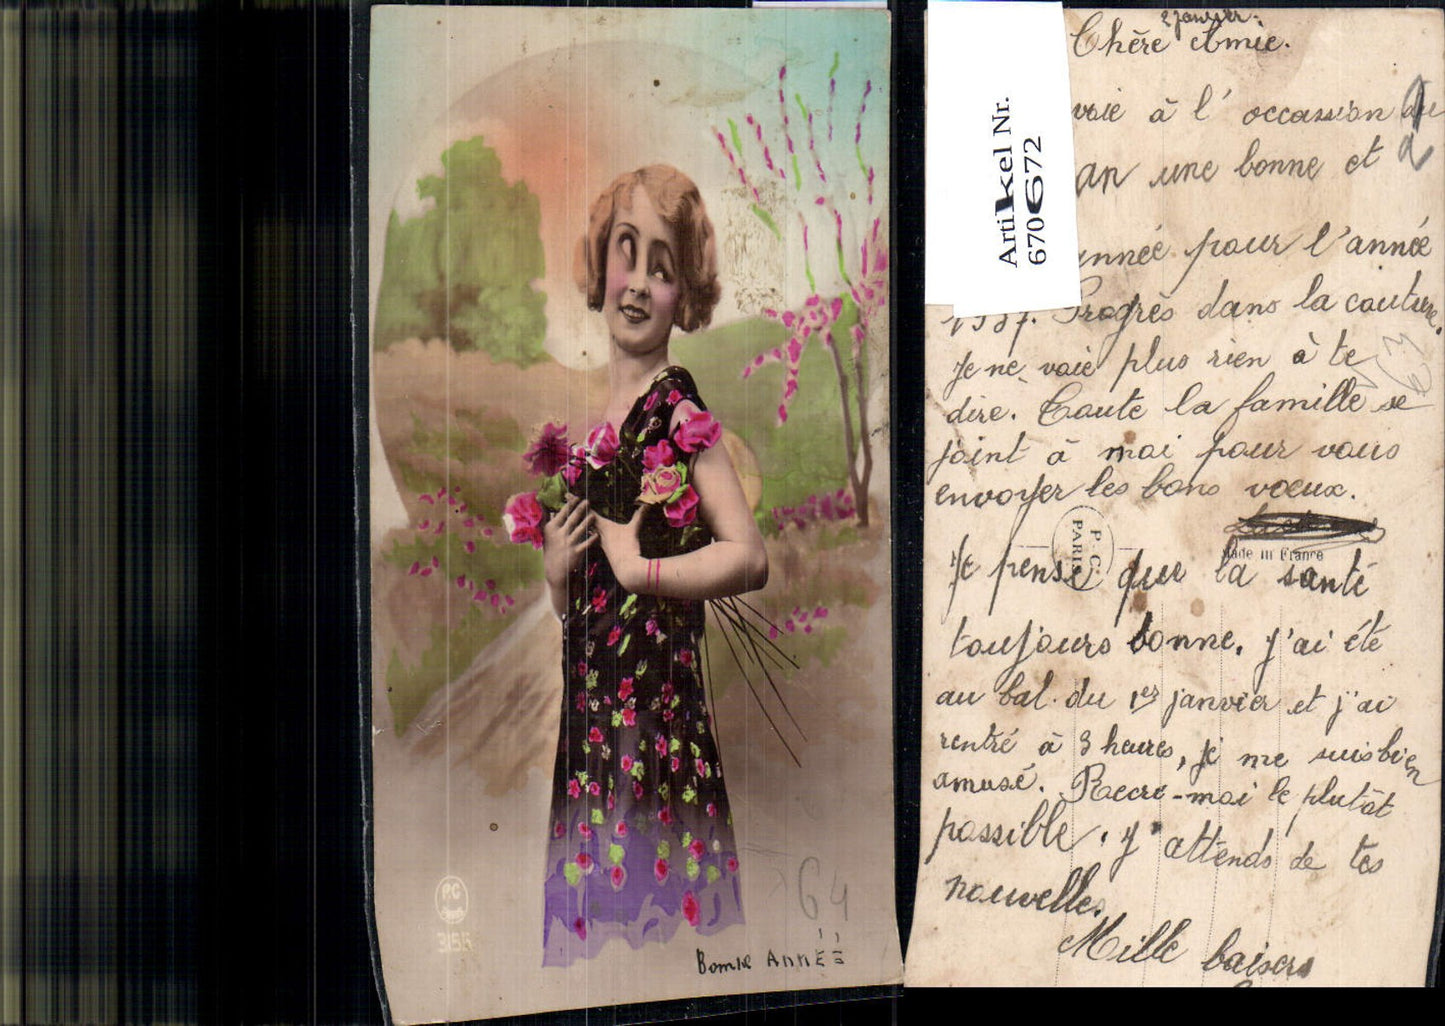 P.C
PARIS
3155
64
Bonne ANNÉE
Artikel Nr.
670672
2 janvier.
Chère Amie.
voie à l'occassion du
an une bonne et
année pour l'année
1937. Progrès dans la couture.
Je ne voie plus rien à te
dire. Toute la famille se
joint à moi pour vous
envoyer les bons voeux.
P.C.
PARIS
Made in France
Je pense que la santé
toujours bonne. j'ai été
au bal du 1er janvier et j'ai
rentré à 3 heures, je me suis bien
amusé. Recrè-moi le plutôt
possible. J'attends de tes
nouvelles.
Mille baisers